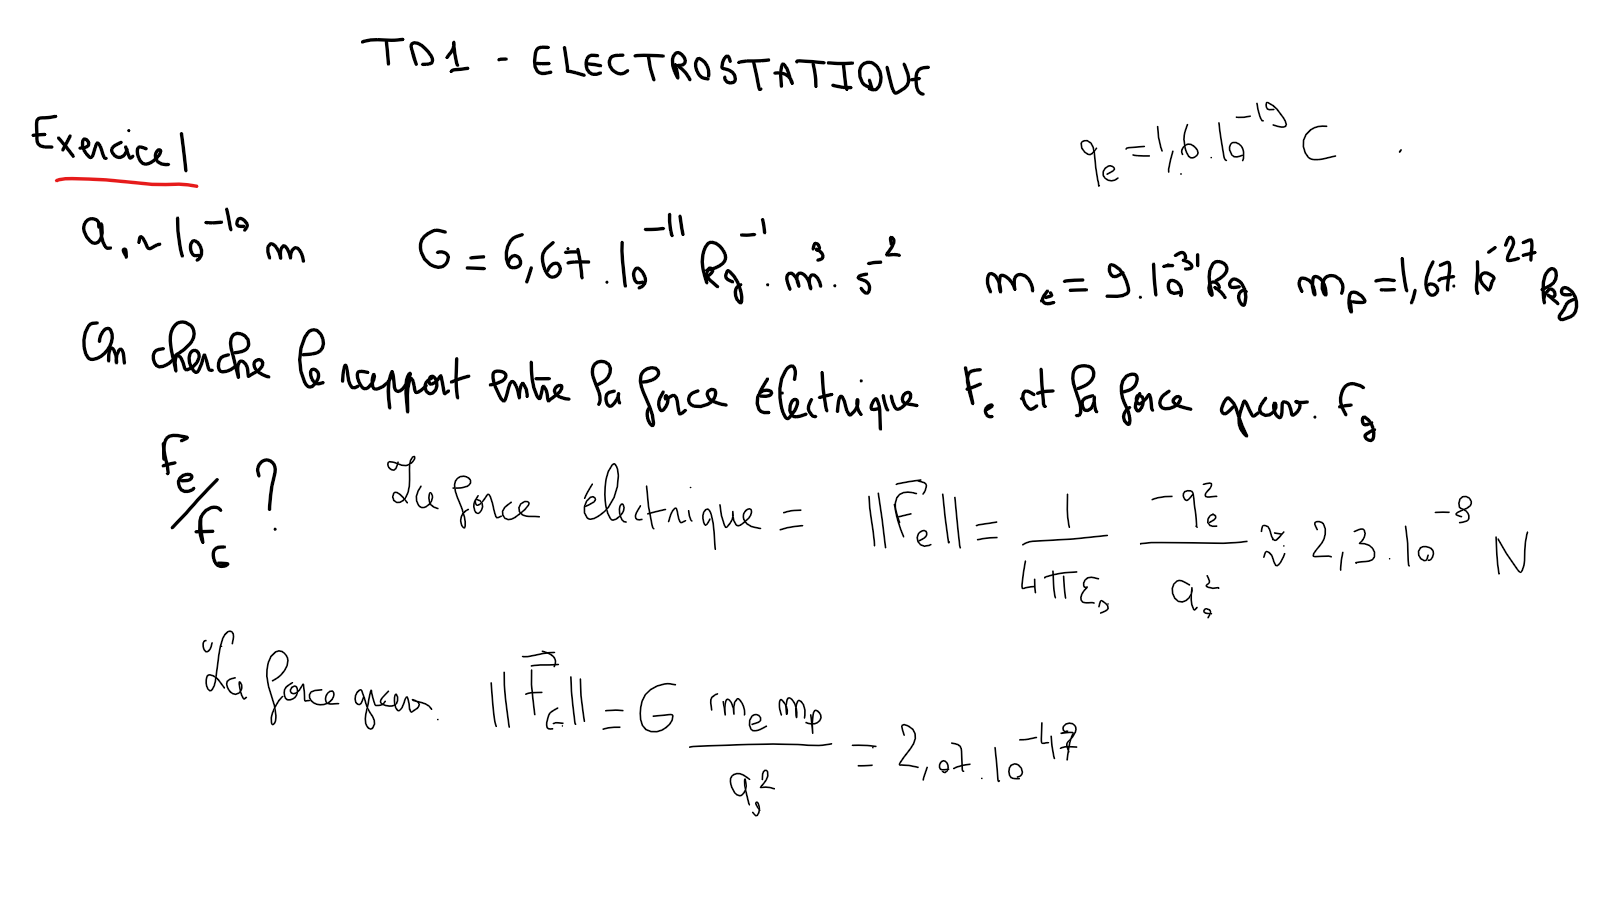 TD1 - ELECTROSTATIQUE
qe = 1,6.10^-19 C .
Exercice 1
a₀ ~ 10^-10 m G = 6,67.10^-11 kg^-1 . m^3 . s^-2 me = 9.10^-31 kg mp = 1,67.10^-27 kg
On cherche le rapport entre la force électrique Fe et la force grav. Fg
Fe/FG ? La force électrique = ||F⃗e|| = 1/(4πε₀) -qe²/a₀² ≈ 2,3.10^-8 N
La force grav. ||F⃗G|| = G me mp/a₀² = 2,07.10^-47